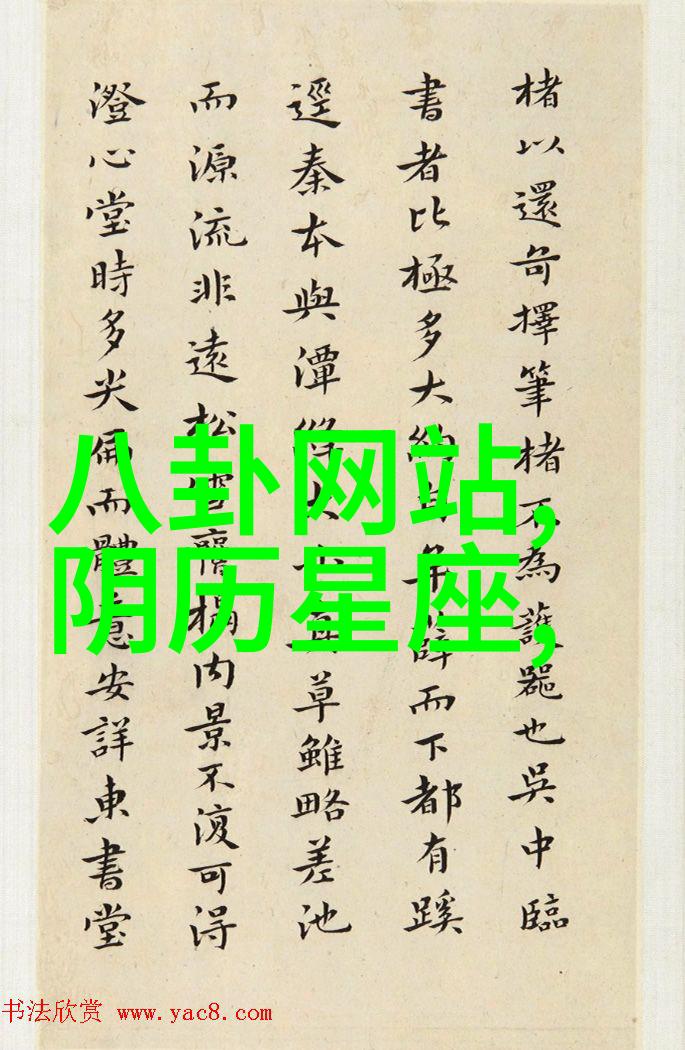 楮以還擇筆楮不為護噐也吳中臨
書者比極多大年而下都有蹊
逕秦本與潭大草雖略差池
而源流非遠松雪内景不復可得
澄心堂時多尖而體意安詳東書堂
八卦网站,
阴历星座,
书法欣赏 www.yac8.com